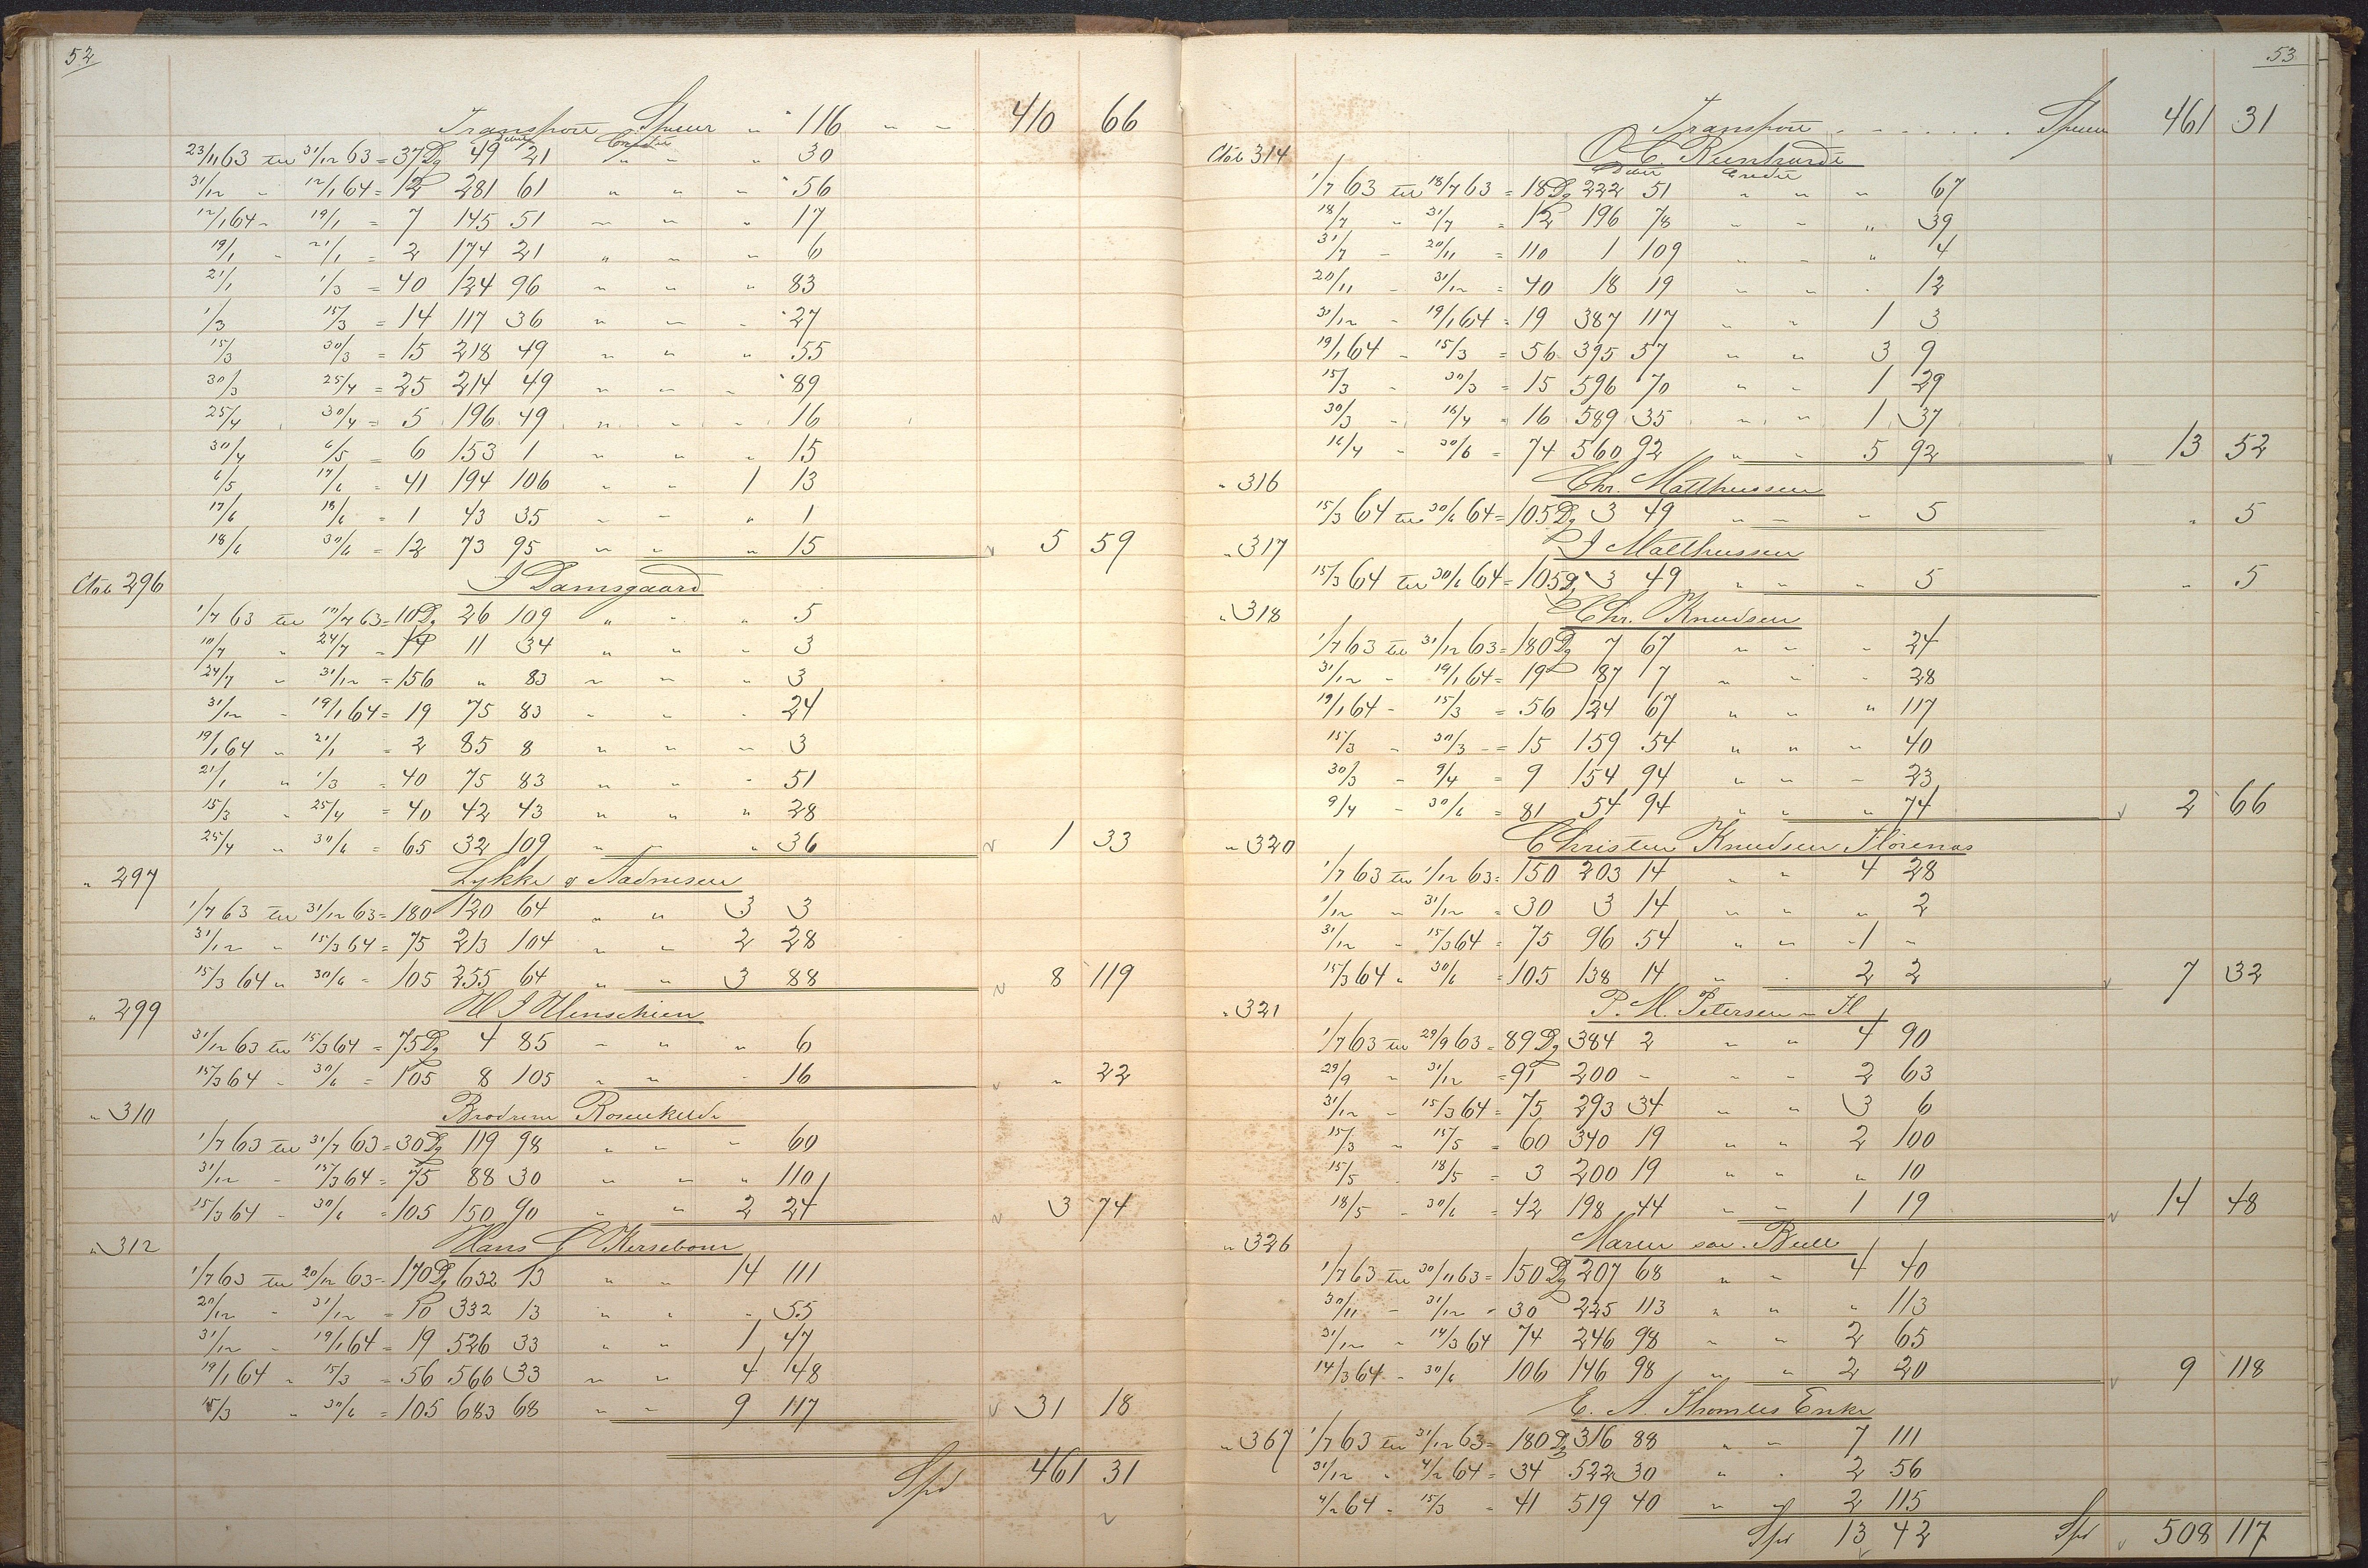 52
Transport Spec " 116 " " 410 66
Debet Credit
23/11 63 til 31/12 63 = 37 Dg 49 21 " " " 30
31/12 " 12/1 64 = 12 281 61 " " " 56
12/1 64 - 19/1 = 7 145 51 " " " 17
19/1 - 21/1 = 2 174 21 " " " 6
21/1 1/3 = 40 124 96 " " " 83
1/3 15/3 = 14 117 36 " " " 27
15/3 30/3 = 15 218 49 " " " 55
30/3 25/4 = 25 214 49 " " " 89
25/4 30/4 = 5 196 49 " " " 16
30/4 6/5 = 6 153 1 " " " 15
6/5 17/6 = 41 194 106 " " 1 13
17/6 18/6 = 1 43 35 " " " 1
18/6 30/6 = 12 73 95 " " " 15 5 59
Ctob 296 J Damsgaard
1/7 63 til 10/7 63 = 10 Dg 26 109 " " " 5
10/7 " 24/7 = 14 11 34 " " " 3
24/7 " 31/12 = 156 " 83 " " " 3
31/12 - 19/1 64 = 19 75 83 " " " 24
19/1 64 " 21/1 = 2 85 8 " " " 3
21/1 " 1/3 = 40 75 83 " " " 51
15/3 " 25/4 = 40 42 43 " " " 28
25/4 " 30/6 = 65 32 109 " " " 36 1 33
" 297 Lykke & Aadnesen
1/7 63 til 31/12 63 = 180 120 64 " " 3 3
31/12 " 15/3 64 = 75 213 104 " " 2 28
15/3 64 " 30/6 = 105 255 64 " " 3 88 8 119
" 299 H J Henschien
31/12 63 til 15/3 64 = 75 Dg 4 85 " " " 6
15/3 64 - 30/6 = 105 8 105 " " " 16 " 22
" 310 Brødrene Rosenkilde
1/7 63 til 31/7 63 = 30 Dg 119 98 " " " 60
31/12 - 15/3 64 = 75 88 30 " " " 110
15/3 64 - 30/6 = 105 150 90 " " 2 24 3 74
" 312 Hans G Kersebom
1/7 63 til 20/12 63 = 170 Dg 632 13 " " 14 111
20/12 - 31/12 = 10 332 13 " " " 55
31/12 - 19/1 64 = 19 526 33 " " 1 47
19/1 64 " 15/3 = 56 566 33 " " 4 48
15/3 " 30/6 = 105 683 68 " " 9 117 31 18
Spd 461 31
53
Transport - - - Spec 461 31
Ctob 314 O C Reinhardt
Debet Credit
1/7 63 til 18/7 63 = 18 Dg 222 51 " " " 67
18/7 - 31/7 = 12 196 78 " " " 39
31/7 - 20/11 = 110 1 109 " " " 4
20/11 - 31/12 = 40 18 19 " " " 12
31/12 - 19/1 64 = 19 387 117 " " 1 3
19/1 64 - 15/3 = 56 395 57 " " 3 9
15/3 - 30/3 = 15 596 70 " " 1 29
30/3 - 16/4 = 16 589 35 " " 1 37
16/4 - 30/6 = 74 560 92 " " 5 92 13 52
" 316 Chr. Malthussen
15/3 64 til 30/6 64 = 105 Dg 3 49 " " " 5 " 5
" 317 J Malthussen
15/3 64 til 30/6 64 = 105 Dg 3 49 " " " 5 " 5
" 318 Chr. Knudsen
1/7 63 til 31/12 63 = 180 Dg 7 67 " " " 24
31/12 - 19/1 64 = 19 187 7 " " " 28
19/1 64 - 15/3 = 56 124 67 " " " 117
15/3 - 30/3 = 15 159 54 " " " 40
30/3 - 9/4 = 9 154 94 " " " 23
9/4 - 30/6 = 81 54 94 " " " 74 2 66
" 320 Christen Knudsen Florenæs
1/7 63 til 1/12 63 = 150 203 14 " " 4 28
1/12 " 31/12 = 30 3 14 " " " 2
31/12 - 15/3 64 = 75 96 54 " " 1 "
15/3 64 " 30/6 = 105 138 14 " " 2 2 7 32
" 321 P. M. Petersen - Fl
1/7 63 til 29/9 63 = 89 Dg 384 2 " " 4 90
29/9 " 31/12 = 91 200 - " " 2 63
31/12 - 15/3 64 = 75 293 34 " " 3 6
15/3 " 15/5 = 60 340 19 " " 2 100
15/5 - 18/5 = 3 200 19 " " " 10
18/5 - 30/6 = 42 198 44 " " 1 19 14 48
" 326 Maren sal. Bull
1/7 63 til 30/11 63 = 150 Dg 207 68 " " 4 40
30/11 - 31/12 = 30 225 113 " " " 113
31/12 - 14/3 64 74 246 98 " " 2 65
14/3 64 - 30/6 106 146 98 " " 2 20 9 118
E. A. Thomles Enke
" 367 1/7 63 til 31/12 63 = 180 Dg 316 88 " " 7 111
31/12 " 4/2 64 = 34 522 30 " " 2 56
4/2 64 - 15/3 = 41 519 40 " " 2 115
Spd 13 42 Spd 508 117